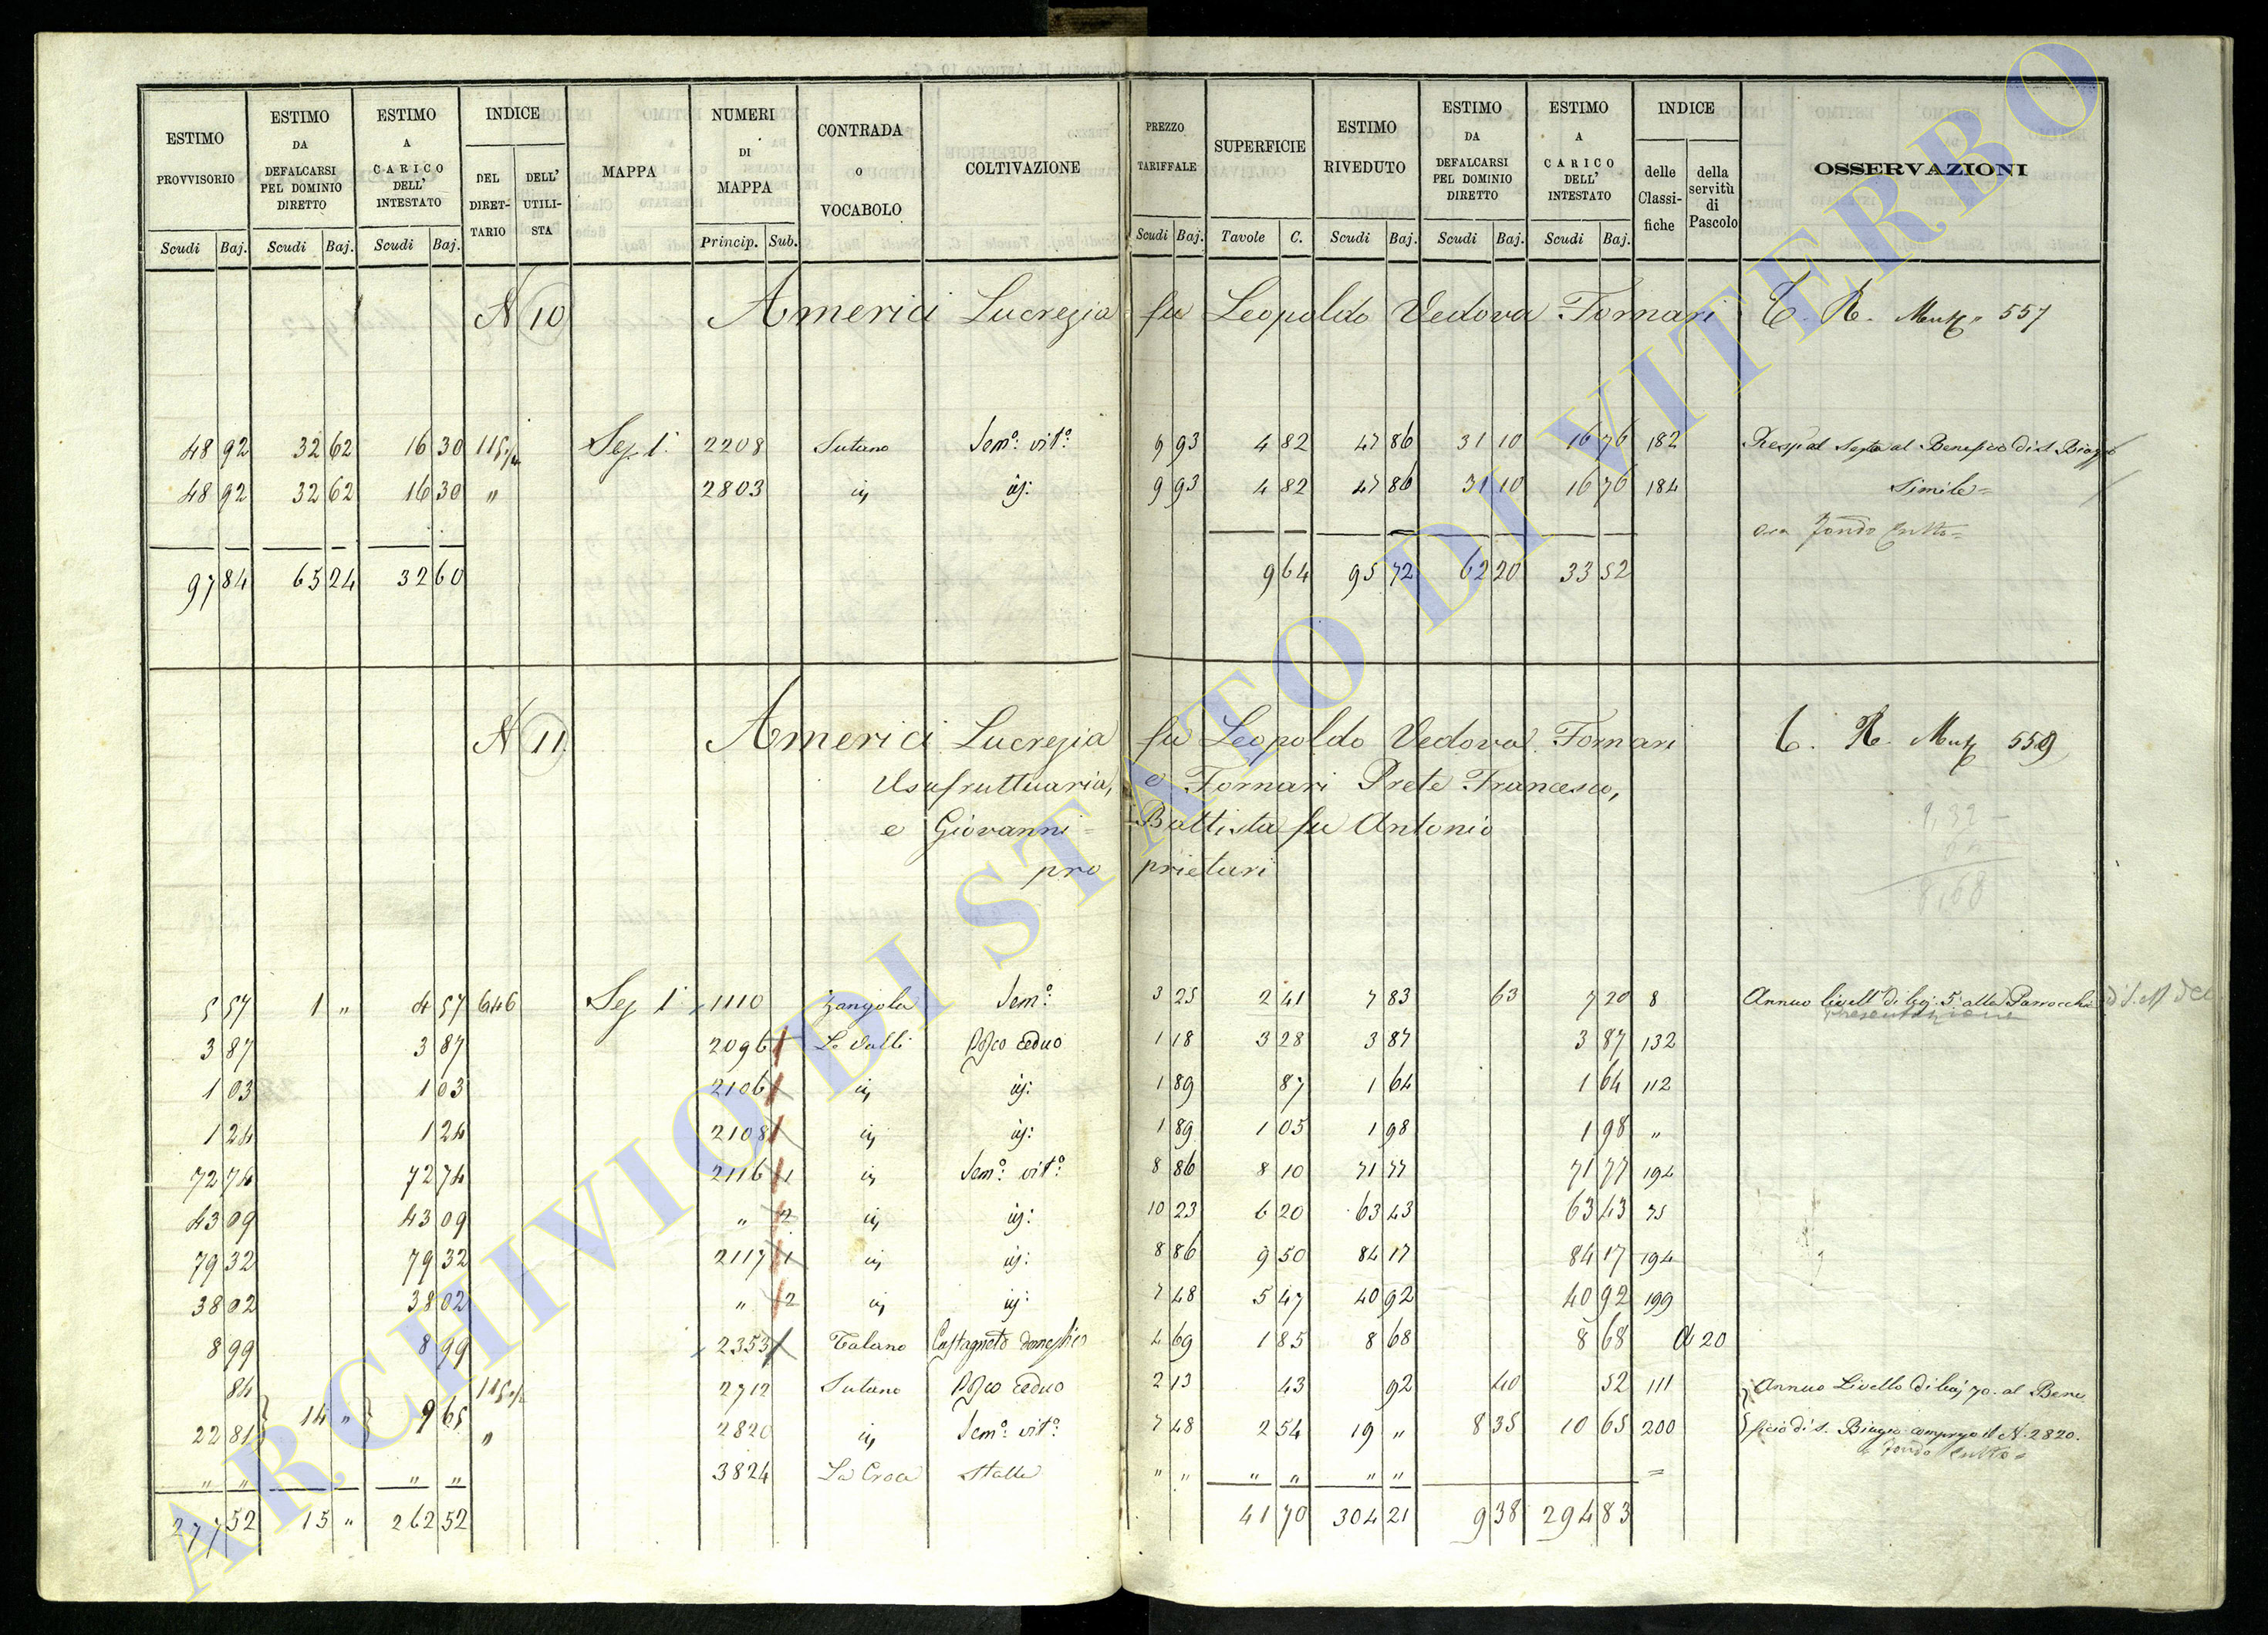 ESTIMO PROVVISORIO | ESTIMO DA DEFALCARSI PEL DOMINIO DIRETTO | ESTIMO A CARICO DELL' INTESTATO | INDICE DEL DIRET-TARIO | DELL' UTILI-STA | MAPPA | NUMERI DI MAPPA | CONTRADA O VOCABOLO | COLTIVAZIONE | PREZZO TARIFFALE | SUPERFICIE | ESTIMO RIVEDUTO | ESTIMO DA DEFALCARSI PEL DOMINIO DIRETTO | ESTIMO A CARICO DELL' INTESTATO | INDICE delle Classi-fiche | della servitù di Pascolo | OSSERVAZIONI
Scudi Baj. Scudi Baj. Scudi Baj. Princip. Sub. Scudi Baj. Tavole C. Scudi Baj. Scudi Baj. Scudi Baj.
N 10 Americi Lucrezia fu Leopoldo Vedova Fornari C. R. 557
48 92 32 62 16 30 Sez 1ª 2208 Sutano Semo: vito: 9 93 4 82 47 86 31 10 16 76 182 al Beneficio di S. Biagio
48 92 32 62 16 30 " 2803 ij ij: 9 93 4 82 47 86 31 10 16 76 184 Simile =
ora fondo
97 84 65 24 32 60 9 64 95 72 62 20 33 52
N 11 Americi Lucrezia fu Leopoldo Vedova Fornari C. R. 559
Usufruttuaria, e Fornari Prete Francesco,
e Giovanni = Battista fu Antonio
proprietari
9,32
8,68
5 57 1 " 4 57 646 Sez 1ª 1110 Zangola Semo: 3 25 2 41 7 83 63 7 20 8 Annuo livello di baj. 5 alla Parrocchia di S. M. del
Presentazione
3 87 3 87 2096 Le Valli Bosco Ceduo 1 18 3 28 3 87 3 87 132
1 03 1 03 2106 ij ij: 1 89 87 1 64 1 64 112
1 24 1 24 2108 ij ij: 1 89 1 05 1 98 1 98 "
72 74 72 74 2116 1 ij Semo: vito: 8 86 8 10 71 77 71 77 194
43 09 43 09 " 2 ij ij: 10 23 6 20 63 43 63 43 75
79 32 79 32 2117 1 ij ij: 8 86 9 50 84 17 84 17 194
38 02 38 02 " 2 ij ij: 7 48 5 47 40 92 40 92 199
8 99 8 99 2353 Talano Castagneto domestico 4 69 1 85 8 68 8 68 20
84 2712 Sutano Bosco Ceduo 2 13 43 92 40 52 111 Annuo Livello di baj 70. al Bene
22 81 14 " 9 65 " 2820 ij Semo: vito: 7 48 2 54 19 " 8 35 10 65 200 ficio di S. Biagio compreso il N. 2820.
fondo
" " " " 3824 La Croce Stalla " " " " " " =
277 52 15 " 262 52 41 70 304 21 9 38 294 83
ARCHIVIO DI STATO DI VITERBO